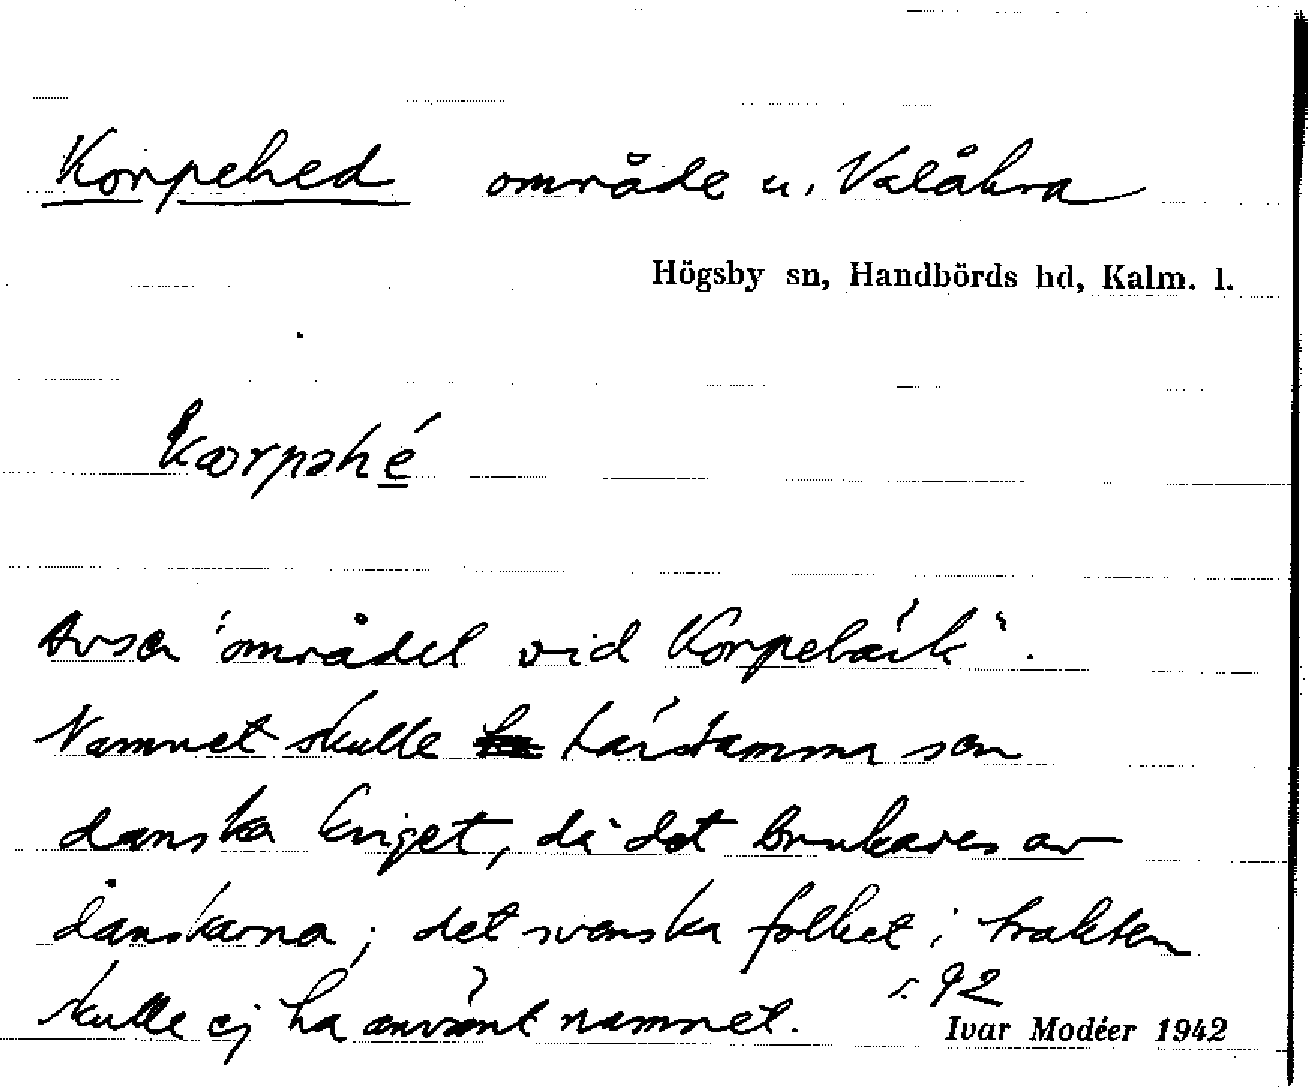 Korpehed område u. Välåkra
Högsby sn, Handbörds hd, Kalm. l.
kærpəhé
Avser "området vid Korpebäck".
Namnet skulle härstamma sen
danska kriget, då det brukades av
danskarna; det svenska folket i trakten
skulle ej ha använt namnet. s. 92
Ivar Modéer 1942